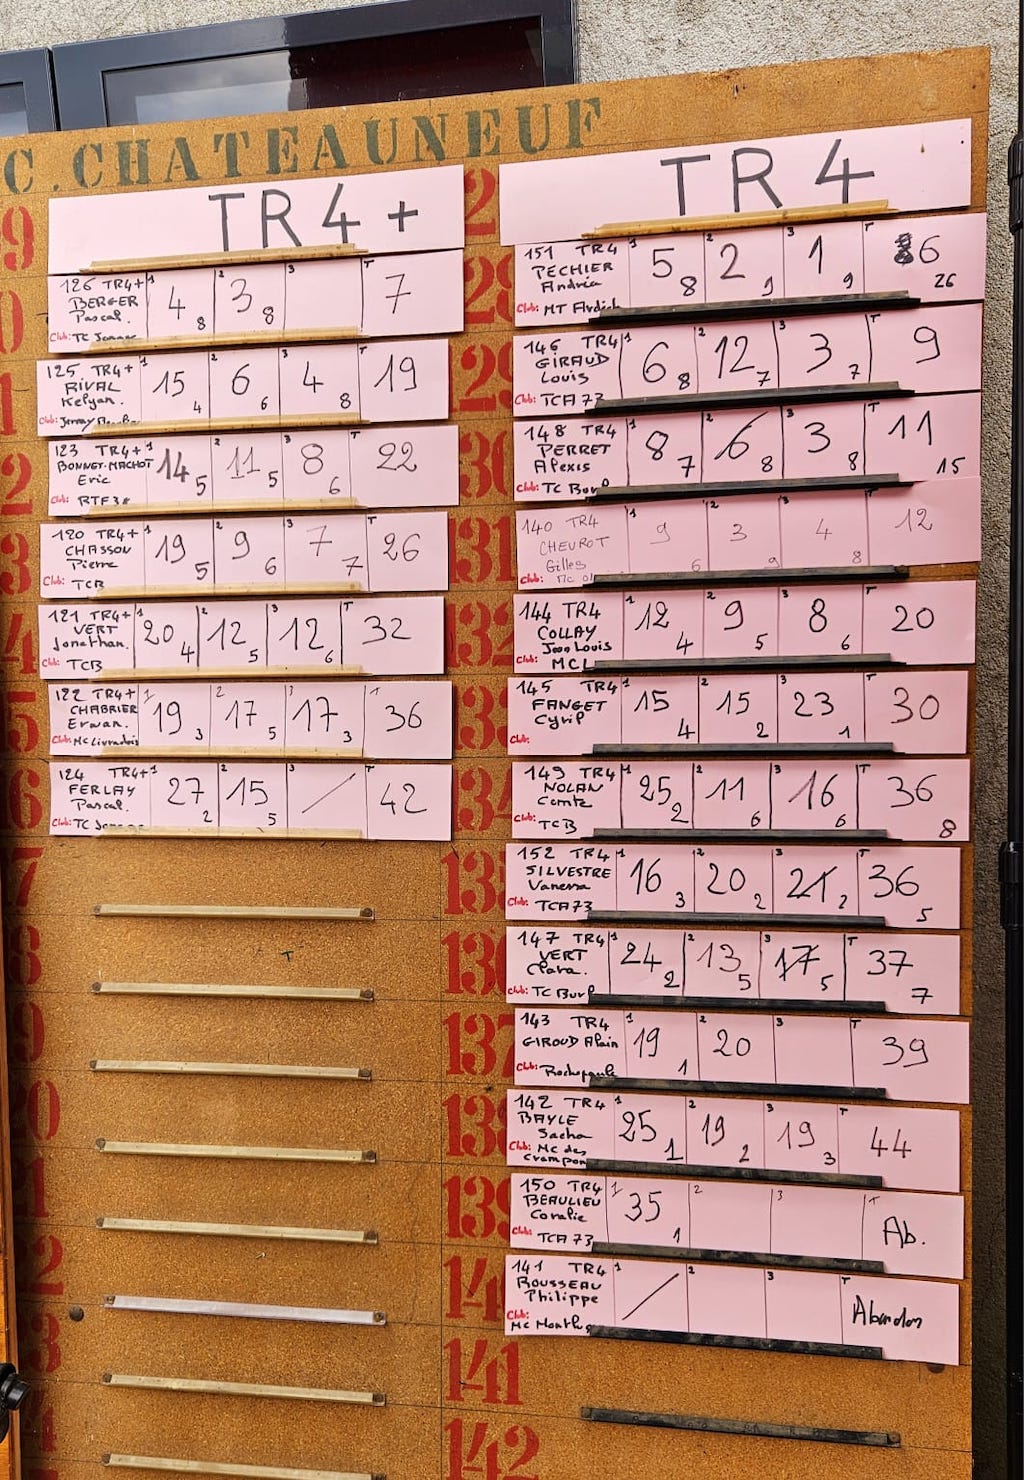 C. CHATEAUNEUF
TR4+
126 TR4+ 1 2 3 T
BERGER 4 8 3 8 7
Pascal.
Club: TC
125 TR4+ 1 2 3 T
RIVAL 15 4 6 6 4 8 19
Kelyan.
Club:
123 TR4+ 1 2 3 T
BONNET-MACHOT 14 5 11 5 8 6 22
Eric
Club:
120 TR4+ 1 2 3 T
CHASSON 19 5 9 6 7 7 26
Pierre
Club: TCB
121 TR4+ 1 2 3 T
VERT 20 4 12 5 12 6 32
Jonathan.
Club: TCB
122 TR4+ 1 2 3 T
CHABRIER 19 3 17 5 17 3 36
Erwan.
Club: Mc Livradois
124 TR4+ 1 2 3 T
FERLAY 27 2 15 5 / 42
Pascal.
Club: TC
TR4
151 TR4 1 2 3 T
PECHIER 5 8 2 9 1 9 6 26
Andréa
Club: MT Ardèch
146 TR4 1 2 3 T
GIRAUD 6 8 12 7 3 7 9
Louis
Club: TCA 73
148 TR4 1 2 3 T
PERRET 8 7 6 8 3 8 11 15
Alexis
Club: TC Burl
140 TR4 1 2 3 T
CHEVROT 9 6 3 9 4 8 12
Gilles
Club: MC 01
144 TR4 1 2 3 T
COLLAY 12 4 9 5 8 6 20
Jean Louis
Club: MCL
145 TR4 1 2 3 T
FANGET 15 4 15 2 23 1 30
Cyril
Club:
149 TR4 1 2 3 T
NOLAN 25 2 11 6 16 6 36 8
Comte
Club: TCB
152 TR4 1 2 3 T
SILVESTRE 16 3 20 2 21 2 36 5
Vanessa
Club: TCA73
147 TR4 1 2 3 T
VERT 24 2 13 5 17 5 37 7
Clara.
Club: TC Burl
143 TR4 1 2 3 T
GIROUD Alain 19 1 20 39
Club: Rochepaule
142 TR4 1 2 3 T
BAYLE 25 1 19 2 19 3 44
Sacha
Club: MC des
Crampon
150 TR4 1 2 3 T
BEAULIEU 35 1 Ab.
Coralie
Club: TCA 73
141 TR4 1 2 3 T
ROUSSEAU / Abandon
Philippe
Club:
141
142